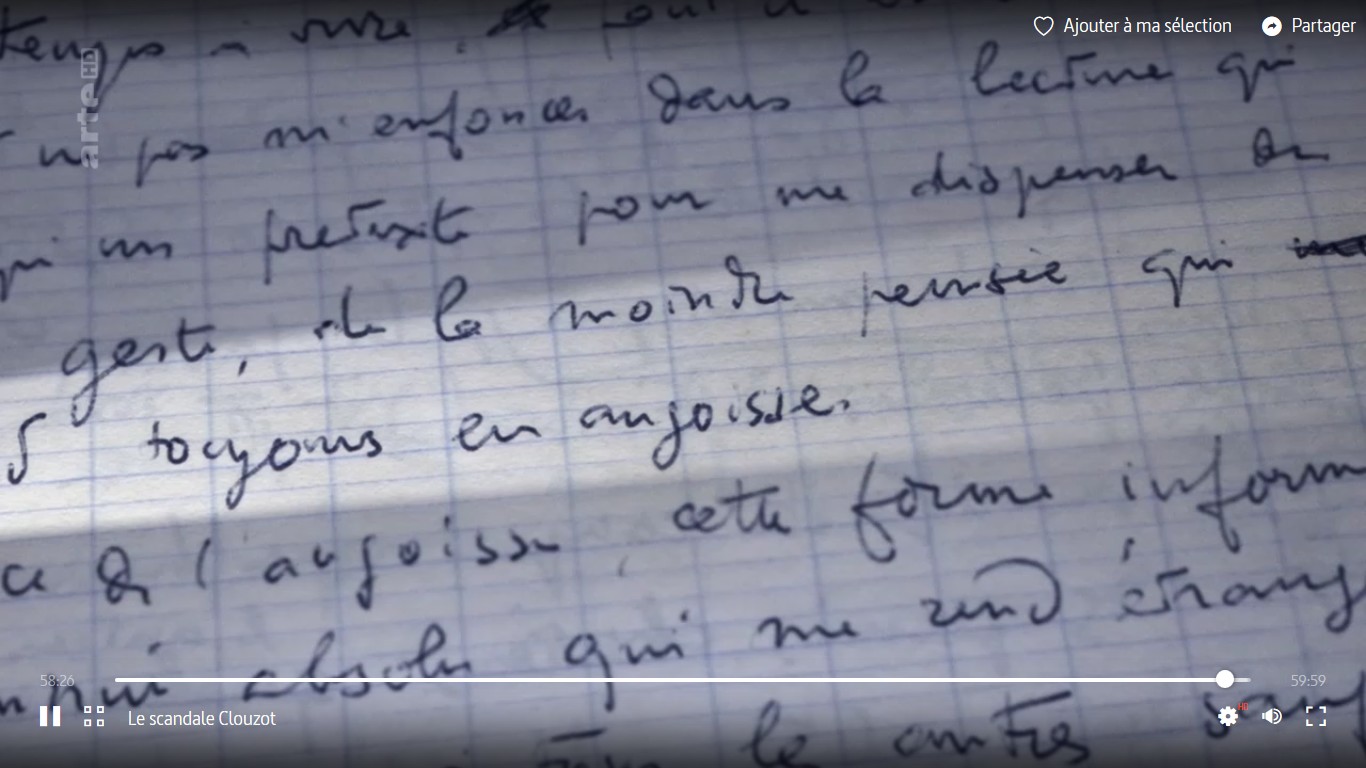 Ajouter à ma sélection
Partager
arte HD
temps à vivre.
ne pas m'enfoncer dans la lecture qui
qui un pretexte pour me dispenser de
geste, de la moindre pensée qui
toujours en angoisse.
ce de l'angoisse, cette forme inform
absolu qui me rend étrang
les autres
58:26
59:59
Le scandale Clouzot
HD